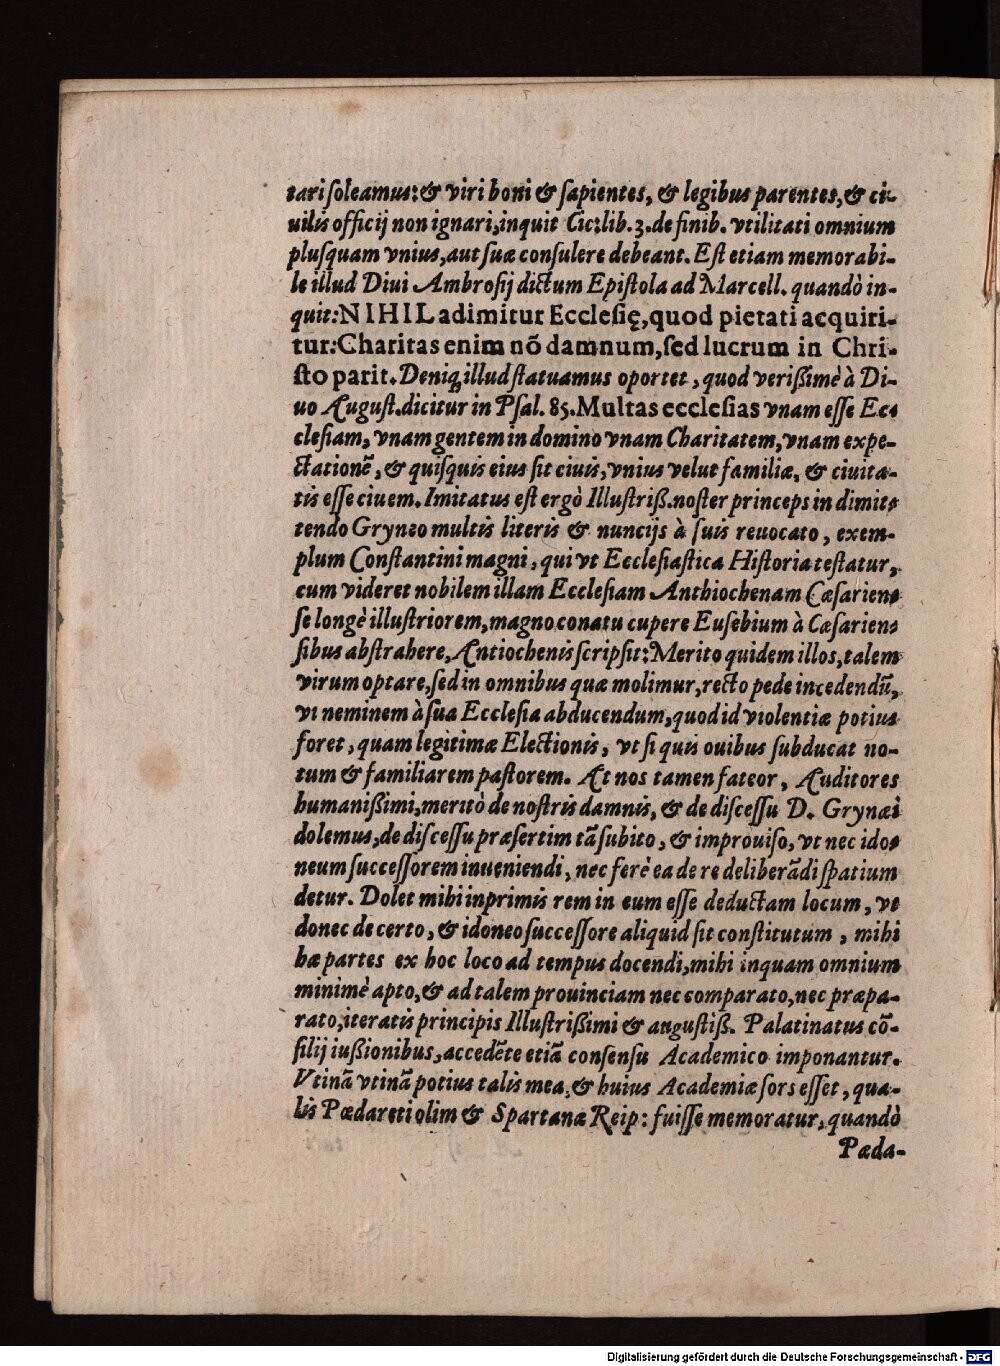 tari soleamus: & viri boni & sapientes, & legibus parentes, & ci-
uilis officij non ignari, inquit Cic: lib. 3. de finib. vtilitati omnium
plusquam vnius, aut suæ consulere debeant. Est etiam memorabi-
le illud Diui Ambrosij dictum Epistola ad Marcell. quandò in-
quit: NIHIL adimitur Ecclesię, quod pietati acquiri-
tur: Charitas enim nõ damnum, sed lucrum in Chri-
sto parit. Deniq; illud statuamus oportet, quod verißimè à Di-
uo August. dicitur in Psal. 85. Multas ecclesias vnam esse Ec-
clesiam, vnam gentem in domino vnam Charitatem, vnam expe-
ctationẽ, & quisquis eius sit ciuis, vnius velut familiæ, & ciuita-
tis esse ciuem. Imitatus est ergò Illustriß. noster princeps in dimit-
tendo Gryneo multis literis & nuncijs à suis reuocato, exem-
plum Constantini magni, qui vt Ecclesiastica Historia testatur,
cum videret nobilem illam Ecclesiam Anthiochenam Cæsarien-
se longè illustriorem, magno conatu cupere Eusebium à Cæsarien-
sibus abstrahere, Antiochenis scripsit: Merito quidem illos, talem
virum optare, sed in omnibus quæ molimur, recto pede incedendũ,
vt neminem à sua Ecclesia abducendum, quod id violentiæ potius
foret, quam legitimæ Electionis, vt si quis ouibus subducat no-
tum & familiarem pastorem. At nos tamen fateor, Auditores
humanißimi, meritò de nostris damnis, & de discessu D. Grynæi
dolemus, de discessu præsertim tã subito, & improuiso, vt nec ido-
neum successorem inueniendi, nec ferè ea de re deliberãdi spatium
detur. Dolet mihi inprimis rem in eum esse deductam locum, vt
donec de certo, & idoneo successore aliquid sit constitutum, mihi
hæ partes ex hoc loco ad tempus docendi, mihi inquam omnium
minimè apto, & ad talem prouinciam nec comparato, nec præpa-
rato, iteratis principis Illustrißimi & augustiß. Palatinatus cõ-
silij iußionibus, accedẽte etiã consensu Academico imponantur.
Vtinã vtinã potius talis mea, & huius Academiæ sors esset, qua-
lis Pædareti olim & Spartanæ Reip: fuisse memoratur, quandò
Pæda-
Digitalisierung gefördert durch die Deutsche Forschungsgemeinschaft - DFG